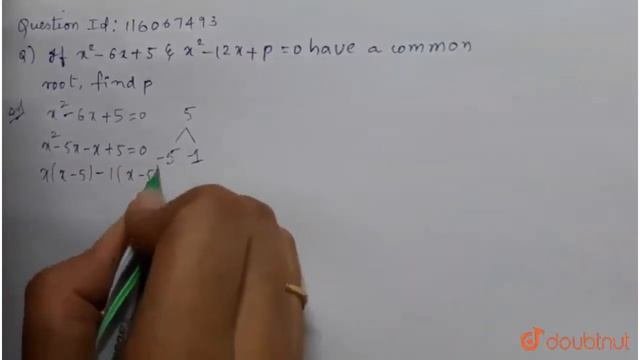 Question Id: 116067493
Q) If x²-6x+5 & x²-12x+p=0 have a common
root, find p
x²-6x+5=0 5
x²-5x-x+5=0 -5 -1
x(x-5)-1(x-5)
doubtnut